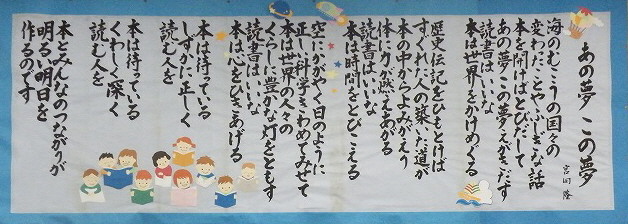 あの夢 この夢
宮田 隆
海のむこうの国々の
変わったことやふしぎな話
本を開けばとびだして
あの夢この夢えがきだす
読書はいいな
本は世界をかけめぐる
歴史伝記をひもとけば
すぐれた人の築いた道が
本の中からよみがえり
体に力が燃えあがる
読書はいいな
本は時間をとびこえる
空にかがやく日のように
正しい科学きわめてみせて
本は世界の人々の
くらしに豊かな灯をともす
読書はいいな
本は心をひきあげる
本は待っている
しずかに正しく
読む人を
本は待っている
くわしく深く
読む人を
本とみんなのつながりが
明るい明日を
作るのです